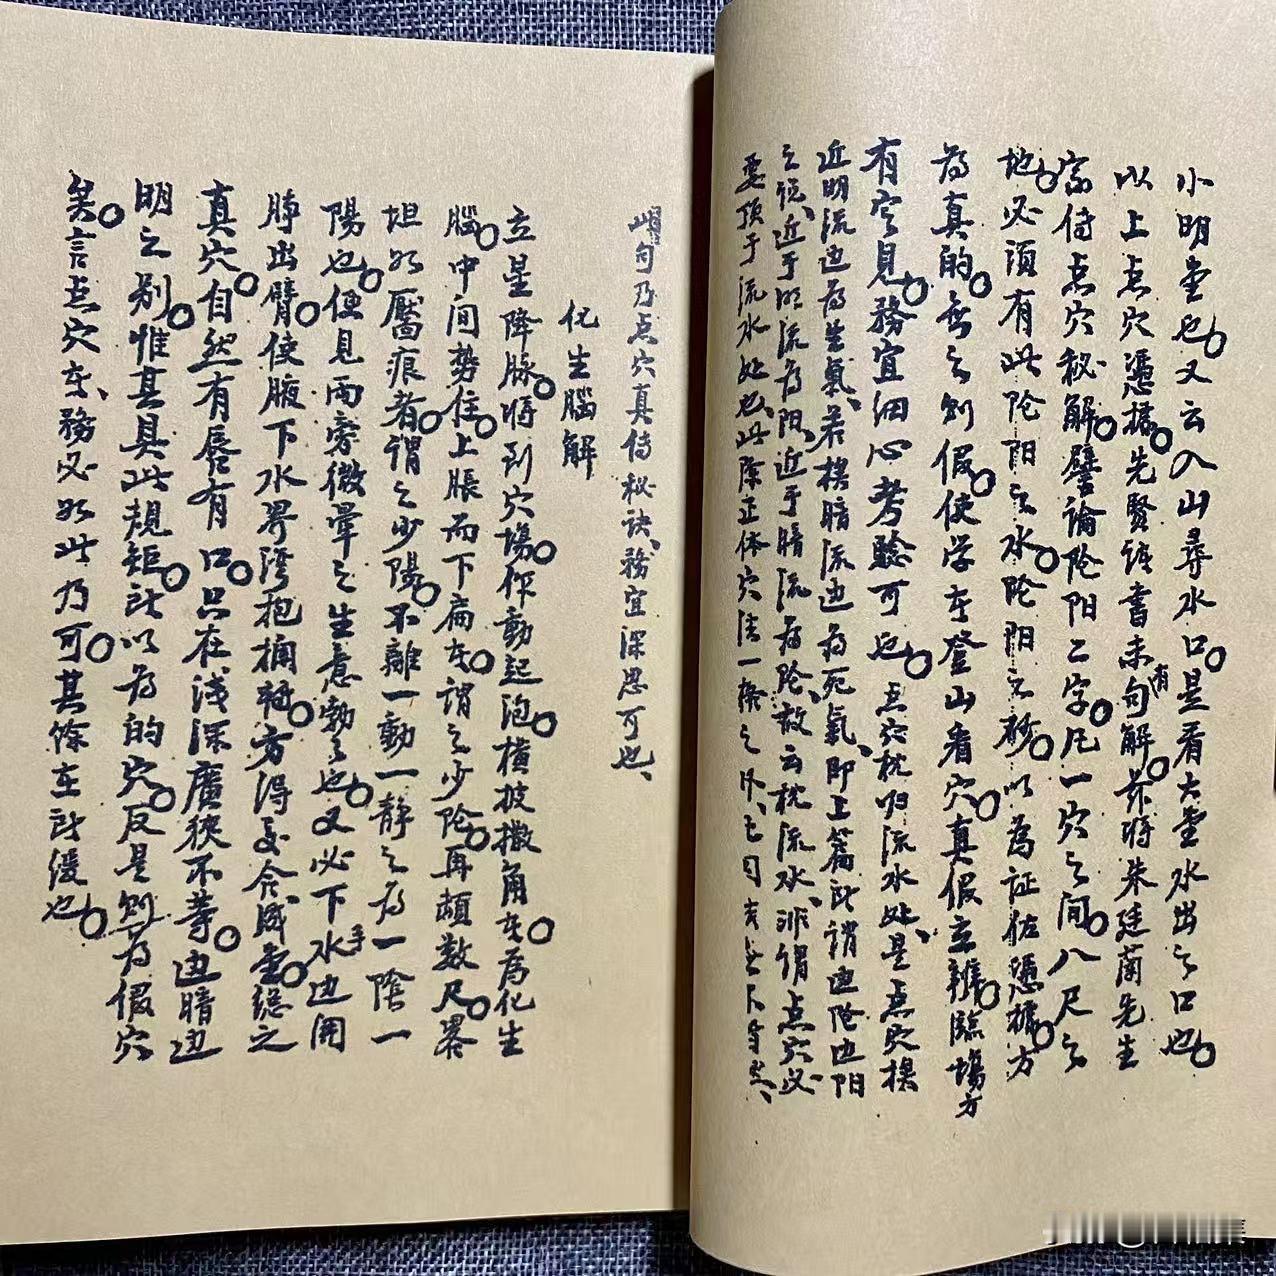 小明堂也又云入山尋水口是看大堂水出之口也
以上点穴憑據先賢諸書未有句解茲將朱廷蘭先生
家傳点穴秘解譬論阴阳二字凡一穴之间八尺之
地必須有此阴阳之水阴阳之砂以為証佐憑據方
為真的無之則假使学者登山看穴真假立辨臨塲方
有定見務宜细心考驗可也点穴枕归流水处是点穴挨
近明流边為生氣若挨暗流边為死氣即上篇所谓边阴边阳
之说近于明流為阳近于暗流為阴故云枕流水非谓点穴必
要顶于流水处也此除正体穴法一格之外
此句乃点穴真传秘诀務宜深思可也
化生腦解
立星降脉將到穴塲作動起泡横披撒角者為化生
腦中间勢住上脹而下扁者謂之少阴再頓数尺畧
坦如靨痕者謂之少陽不離一動一静之為一陰一
陽也使見两旁微暈之生意勃勃也又必下水边開
手脖出臂使腋下水界湾抱擁轉方得交合成雲総之
真穴自然有唇有口只在浅深廣狹不等边暗边
明之别惟其具此規矩所以為的穴反是則為假穴
矣言点穴者務必如此乃可其馀在所缓也